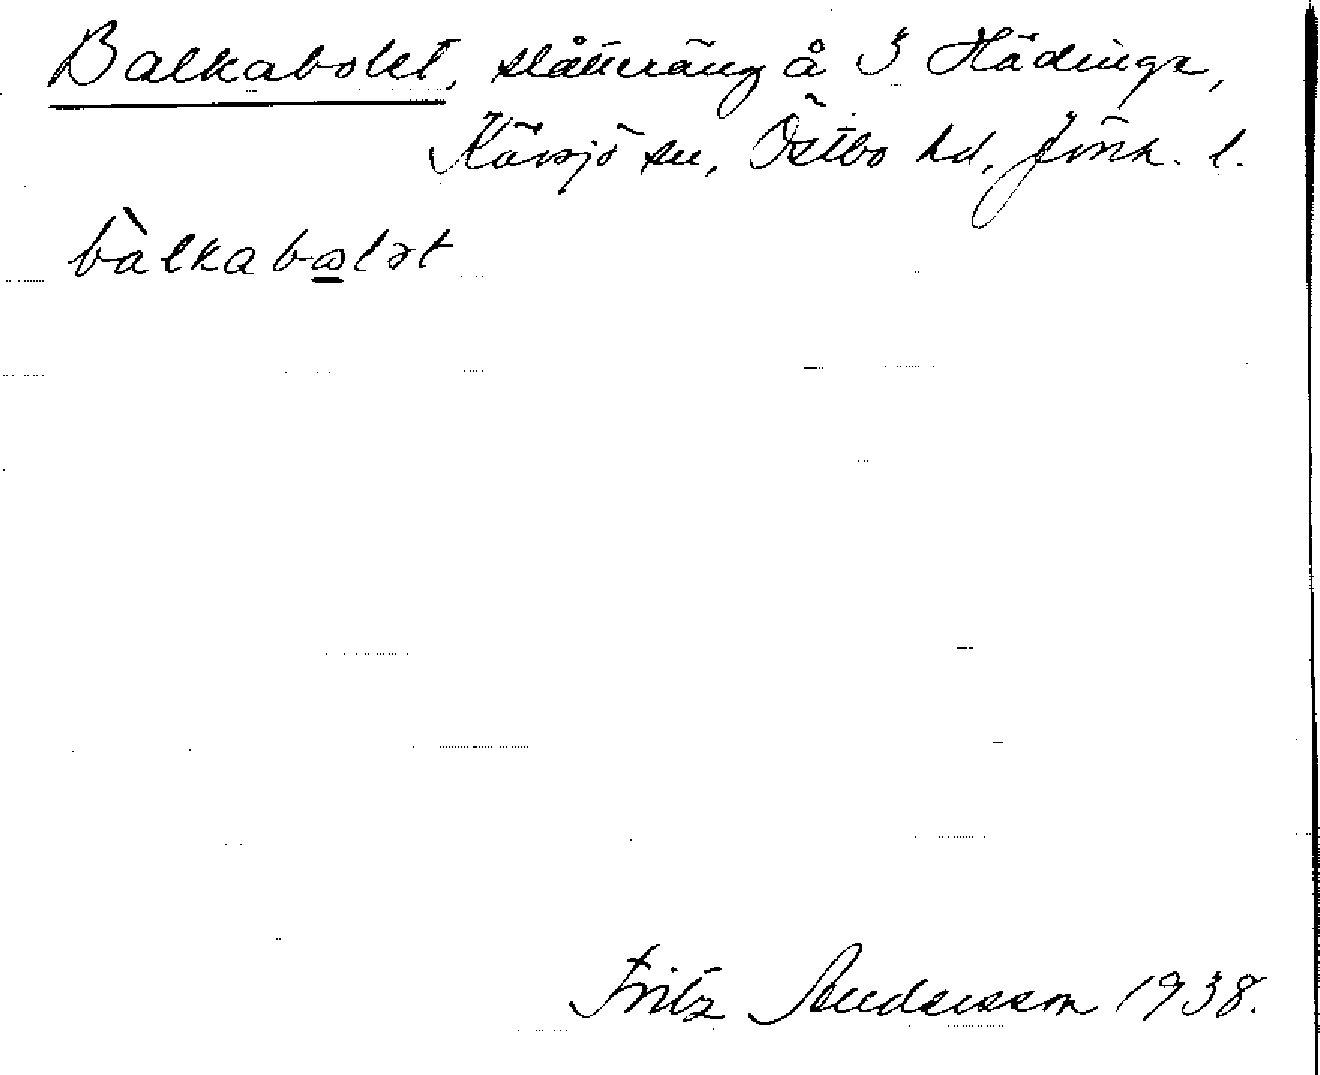 Balkabolet, slåtteräng å 3 Hädinge,
Kävsjö sn, Östbo hd, Jönk. l.
bàlkabolət
Fritz Andersson 1938.